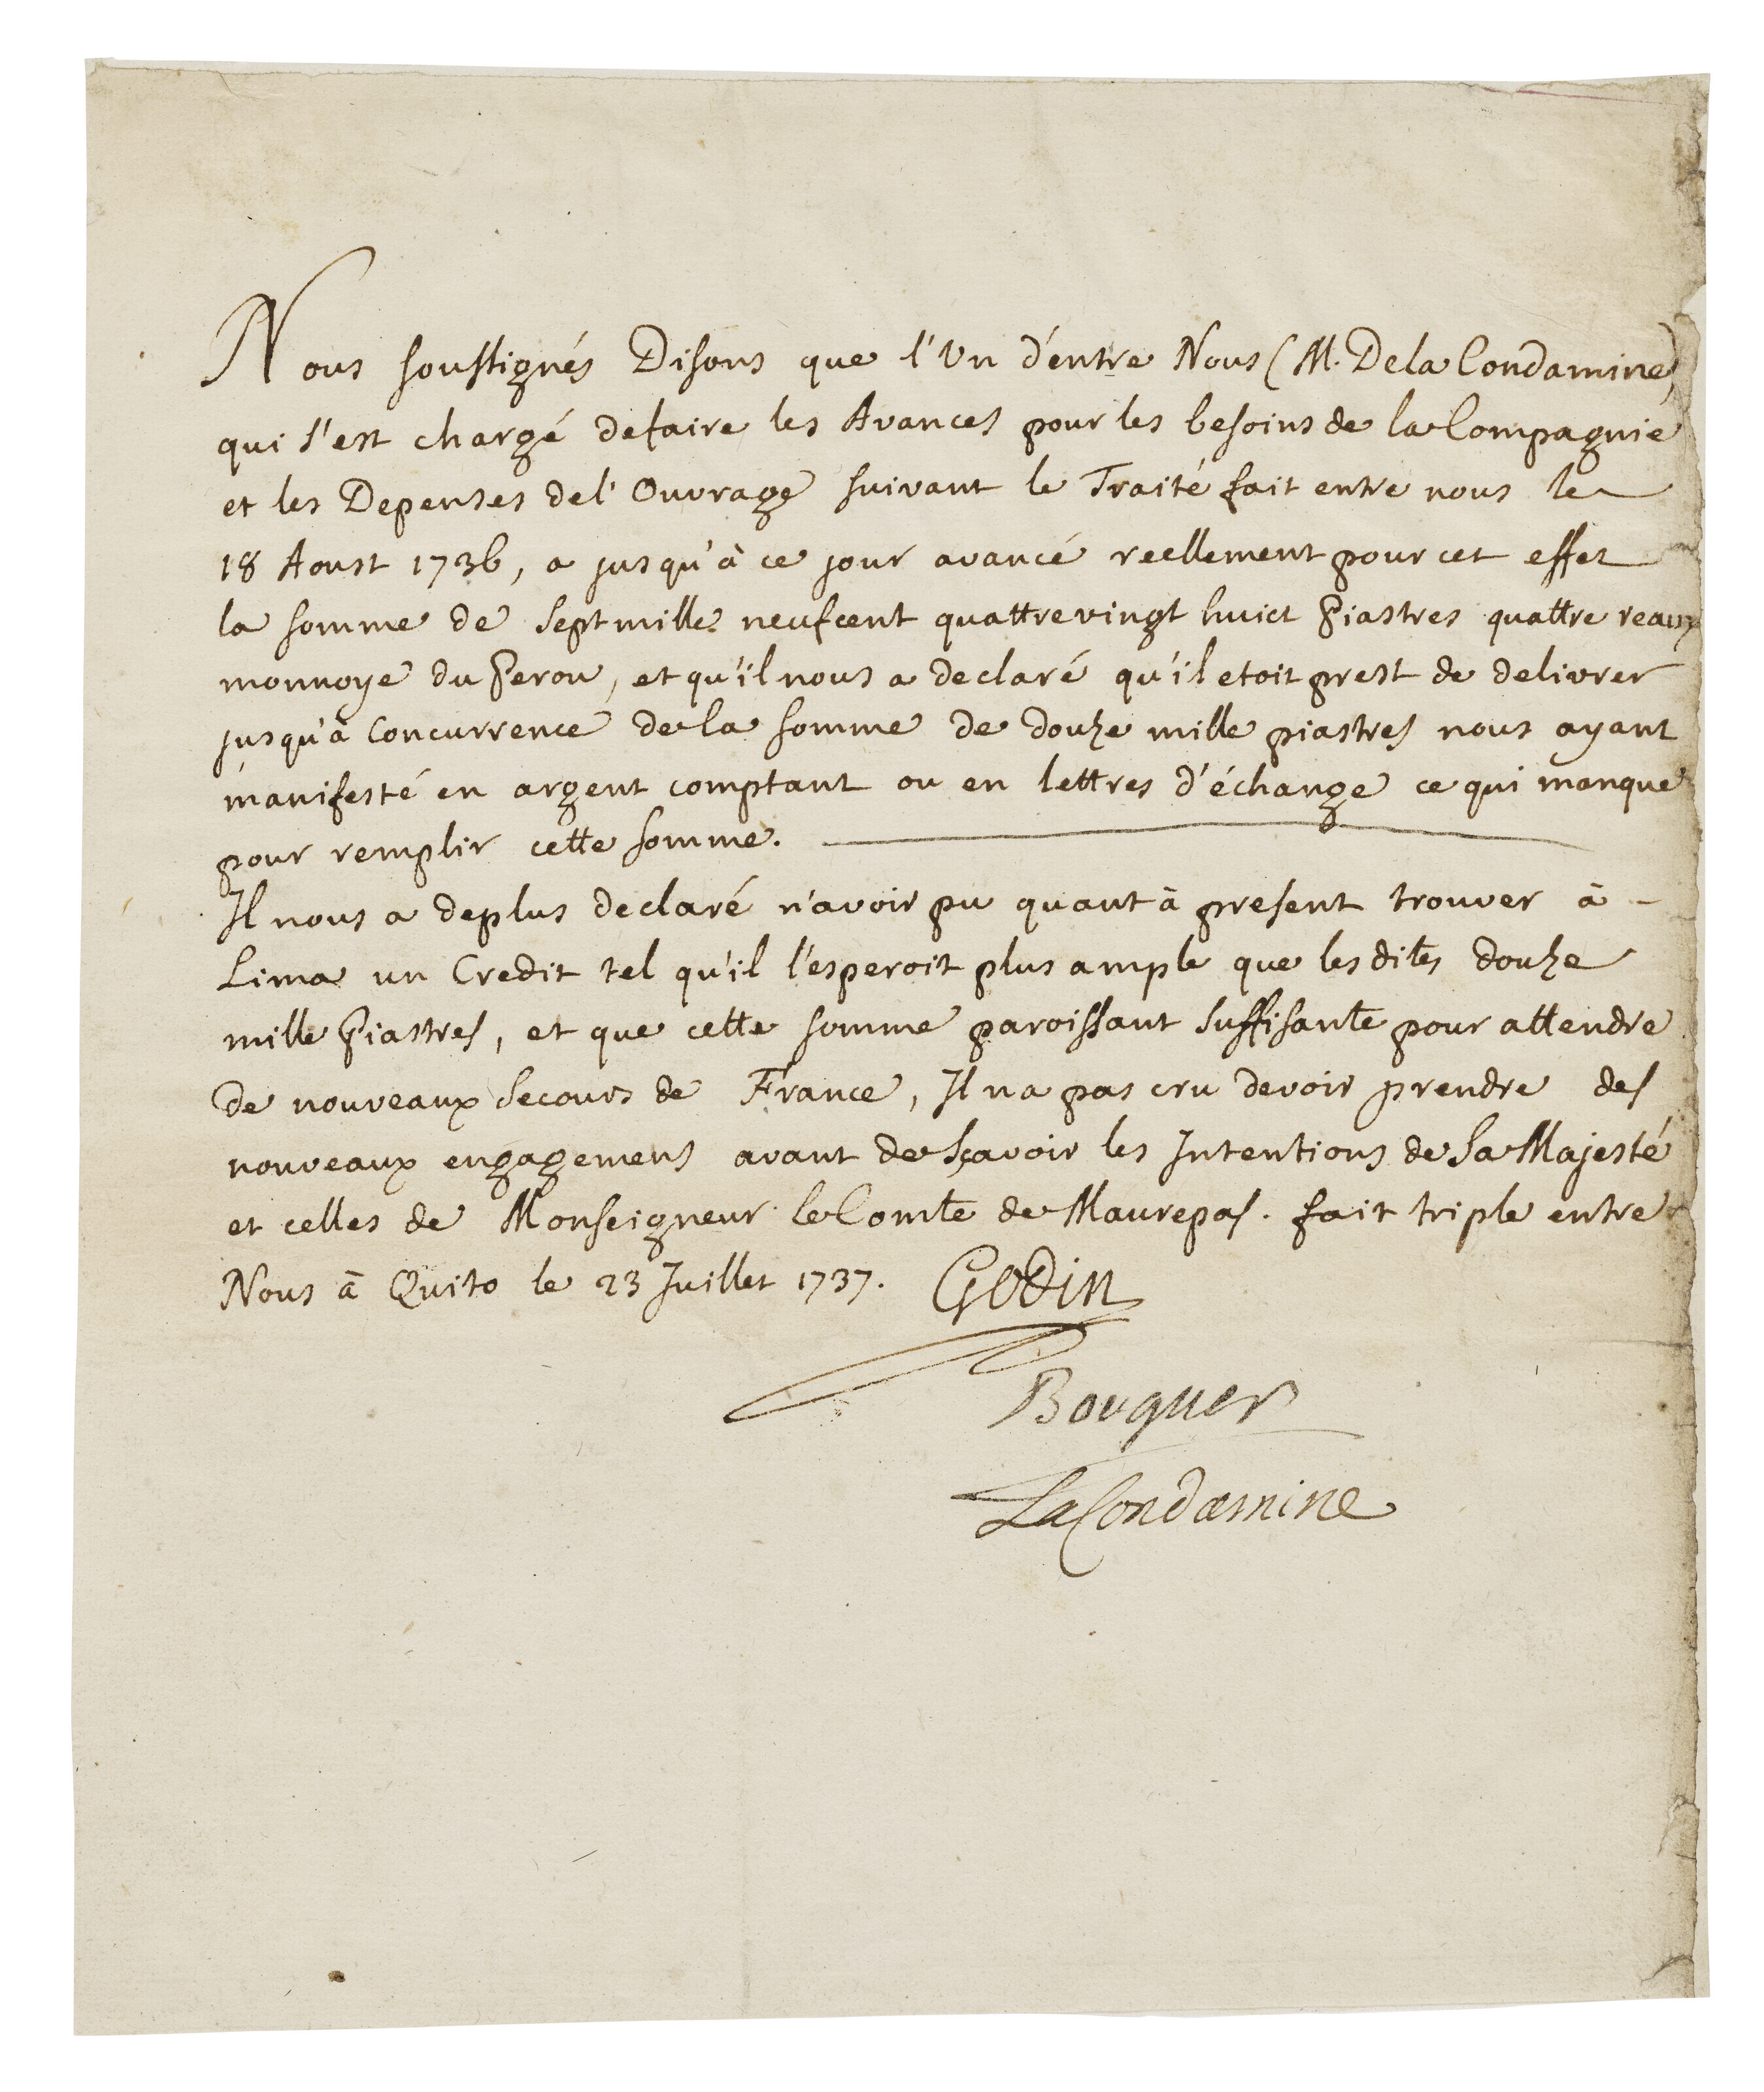 Nous soussignés Disons que l'Un d'entre Nous (M. De la Condamine)
qui s'est chargé de faire les Avances pour les besoins de la Compagnie
et les Depenses de l'Ouvrage suivant le Traité fait entre nous le
18 Aoust 1736, a jusqu'à ce jour avancé reellement pour cet effet
la somme de Sept mille neuf cent quattre vingt huict Piastres quattre reaux
monnoye du Perou, et qu'il nous a declaré qu'il etoit prest de delivrer
jusqu'à Concurrence de la somme de douze mille piastres nous ayant
manifesté en argent comptant ou en lettres d'échange ce qui manque
pour remplir cette somme.
Il nous a de plus declaré n'avoir pu quant à present trouver à
Lima un Credit tel qu'il l'esperoit plus ample que les dites douze
mille Piastres, et que cette somme paroissant suffisante pour attendre
de nouveaux Secours de France, Il na pas cru devoir prendre des
nouveaux engagemens avant de sçavoir les Intentions de Sa Majesté
et celles de Monseigneur le Comte de Maurepas. fait triple entre
Nous à Quito le 23 Juillet 1737. Godin
Bouguer
La Condamine